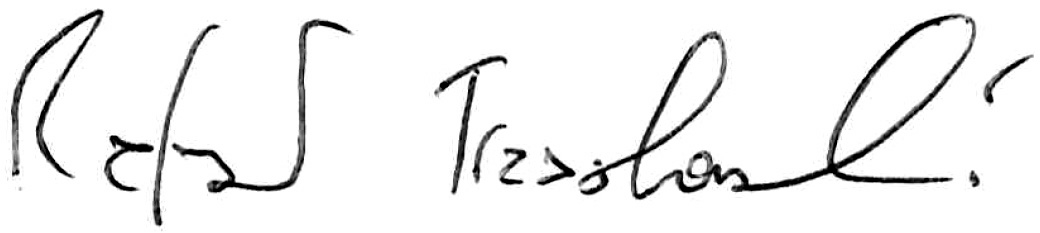 Rafał Trzaskowski